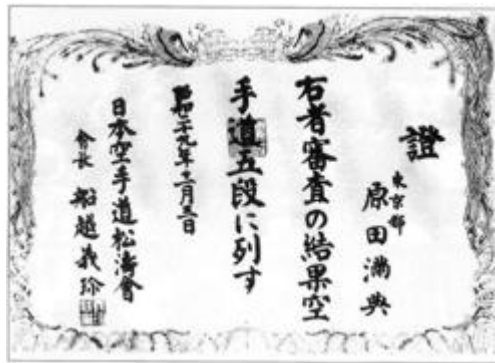 證
東京都
原田満典
右者審査の結果空
手道五段に列す
昭和二十九年十二月五日
日本空手道松濤會
會長 船越義珍